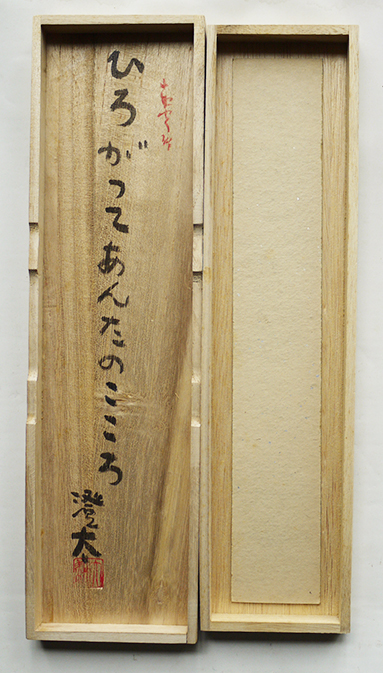 ひろがつてあんたのこころ
澄太